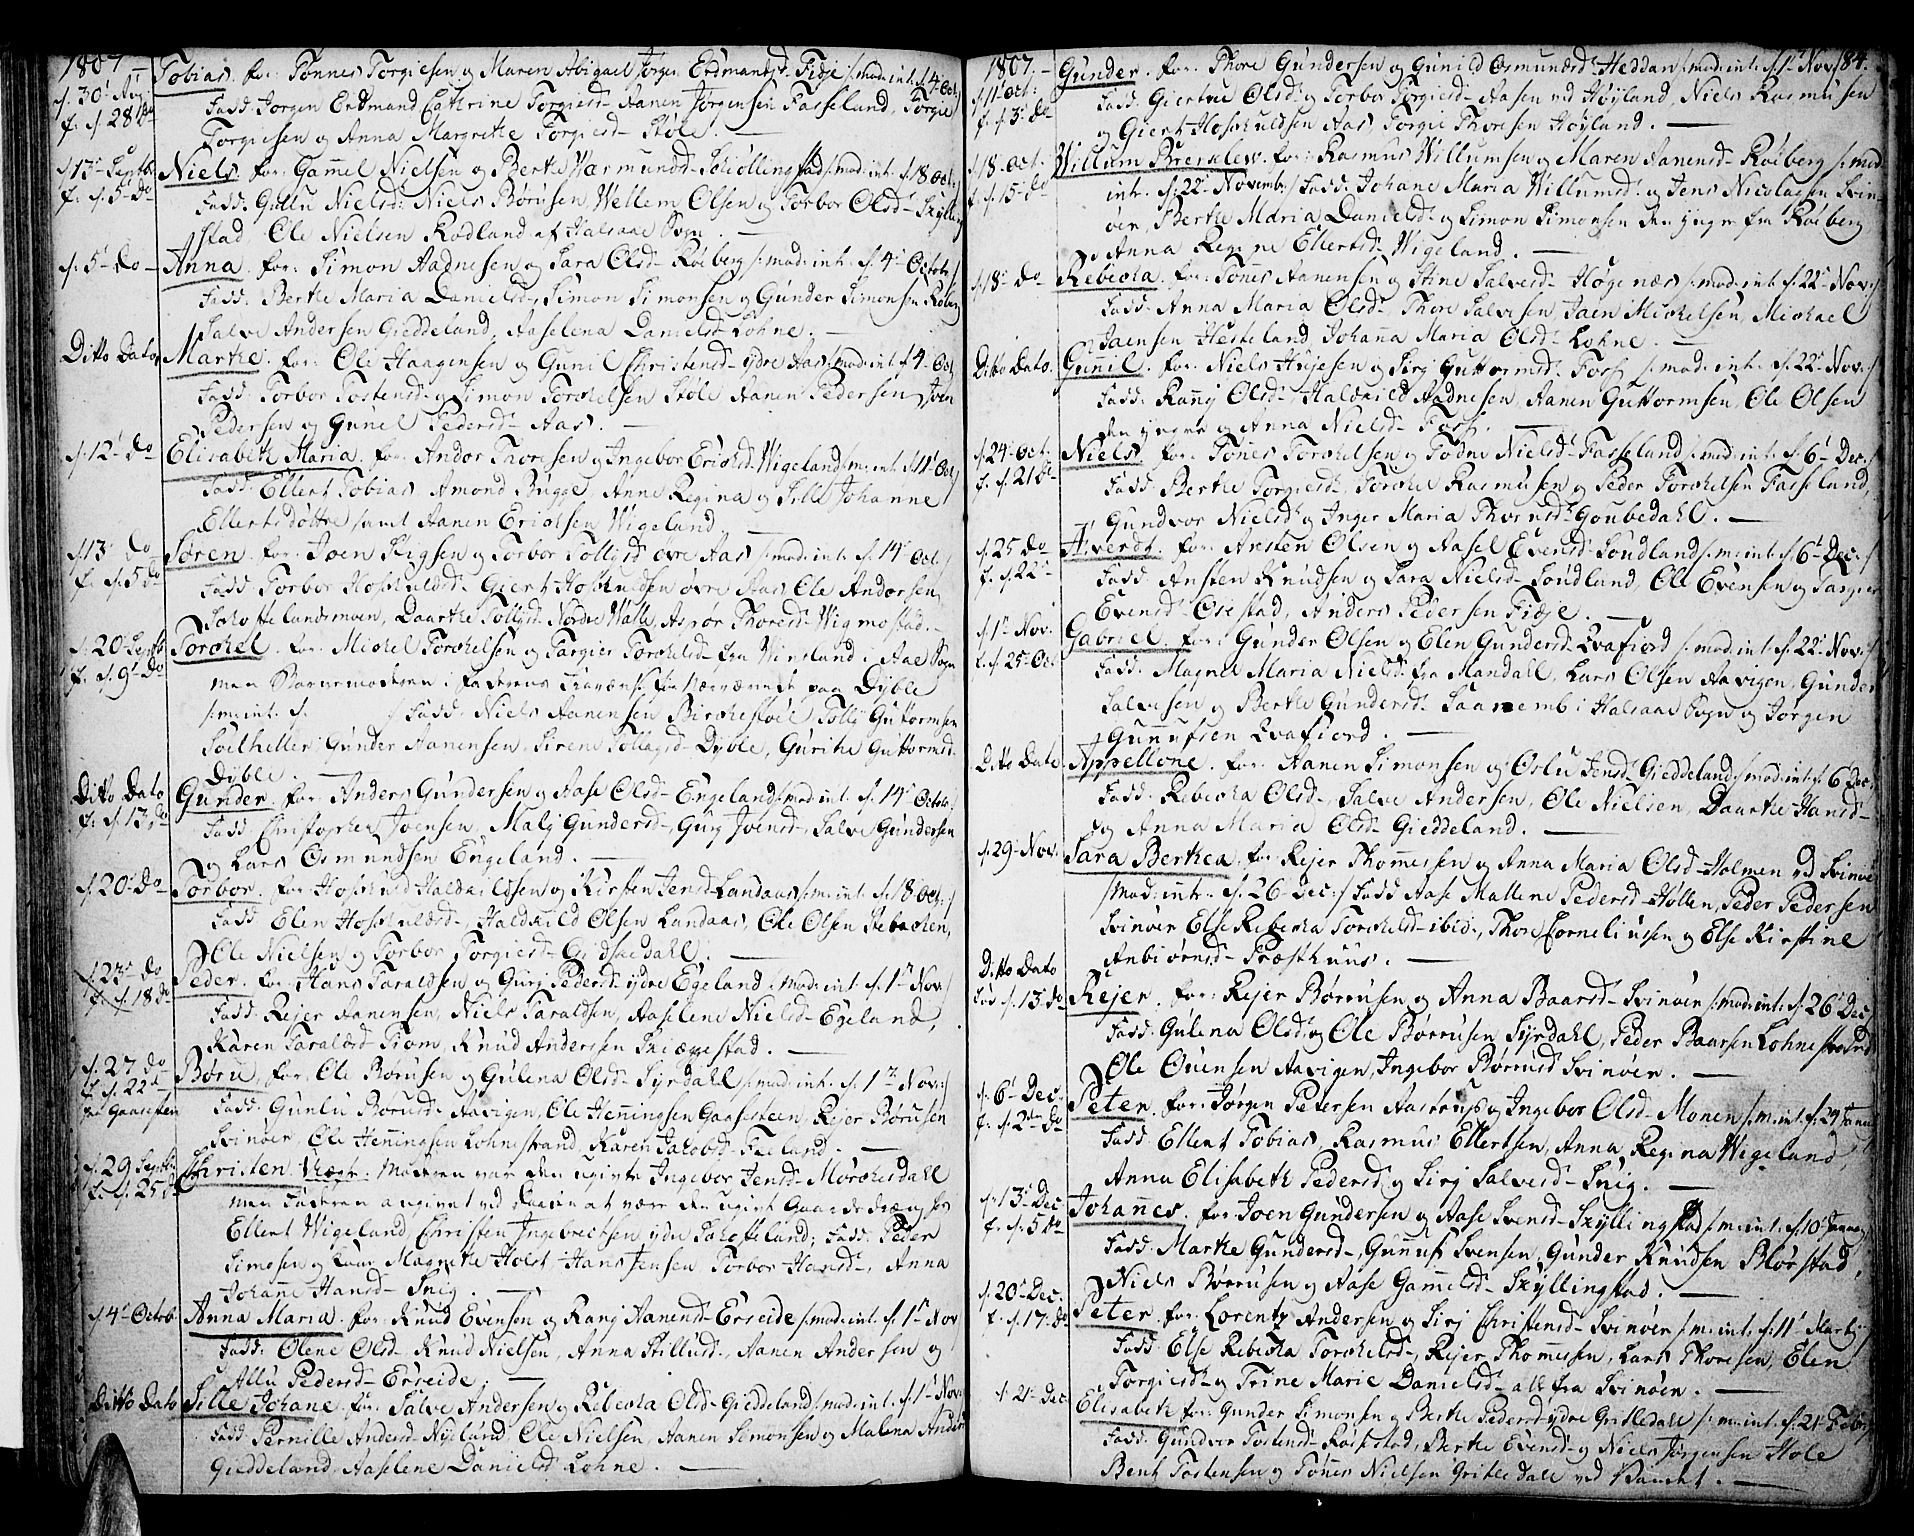 1807 –
Tobias. for: Tönnes Torgiesen og Maren Abigael Jörgen Erdmands Fidje /: mod: int: d. 4 Oct:/
d. 30. Aug.
f. d. 28 do
Fadd: Jörgen Erdmand, Cathrine Torgiesd– Aanen Jörgensen Fasseland, Torgie
Torgiesen og Anna Margrethe Torgiesd– Stöle. —
d. 13. Septb
f. d. 5. do
Niels. for: Gamel Nielsen og Berthe Warmundsd– Schiöllingstad /: mod: int: d. 18 Oct:/
Fadd: Gullu Nielsd: Niels Börusen, Wellem Olsen og Torbor Olsd– Skylling
stad Ole Nielsen Rodland af Halsaae Sogn. —
d. 5. do –
Anna. for: Simon Aadnesen og Sara Olsd– Röeberg /: mod: int: d. 4. Octob:/
Fadd: Berthe Maria Danielsd, Simon Simonsen og Gunder Simonsen Röberg
Salve Andersen Gieddeland, Aaselena Danielsd Lohne. —
Ditto Dato
Marthe. for: Ole Haagensen og Gunil Christensd– ydre Aas /: mod: int d. 4. Oct
Fadd: Torbor Tostensd– og Simon Torchelsen Stöle, Aanen Pedersen, Iven
Pedersen og Gunel Pedersd– Aas. —
d. 12. do
Elisabeth Maria. for: Andor Thoresen og Ingebor Erichsd– Wigeland /: m: int: d. 11. Oct:/
Fadd: Ellert Tobias, Amond Bugge, Anne Regina og Sille Johanne
Ellertsdöttre samt Aanen Erichsen Wigeland —
d. 13. do
f. d. 5 do
Sören. for: Joen Stigsen og Torbor Tollysd– övre Aas /: mod: int: d. 14. Oct:/
Fadd: Torbor Hoskuldsd– Giert Hoskuldsen övre Aas, Ole Andersen
Schottelandsmoen, Daarthe Tollysd– Nordre Walle, Asrör Thoresd– Wigmostad.–
d. 20 Septb
f. d. 9. do
Torchel. for: Michel Torchelsen og Targier Torchelsd– fra Winsland i Aae Sogn
men Barnemoderen i Faderens Fraværelse for nærværende paa Dyble
/: m: int: d. :/ Fadd: Niels Aanensen Birchestöel, Tolly Guttormsen
Soelheller, Gunder Aanensen, Sirene Tollagsd– Dyble, Gurithe Guttormsd–
Dyble. —
Ditto Dato
f. d. 13. do
Gunder. for: Anders Gundersen og Aase Olsd– Engeland /: mod: int: d. 14. Octob:/
Fadd: Christopher Joensen, Maly Gundersd– Gury Joensd– Salve Gundersen
og Lars Osmundsen Engeland. —
d. 20. do
Torbor. for Hoskuld Haldkildsen og Kirsten Jensd– Landaas /: m: int: d. 18 Oct:/
Fadd: Elen Hoskuldsd– Haldkild Olsen Landaas, Ole Olsen Rebachen,
Ole Nielsen og Torbor Torgiesd– Gidsledahl. —
d. 23. do
f. d. 18. do
Peder. for: Hans Taraldsen og Gury Pedersd– ydre Egeland /: mod: int: d. 1. Nov:/
Fadd: Rejer Aanensen, Niels Taraldsen, Aaselene Nielsd– Egeland,
Karen Taraldsd– Tiom, Knud Andersen Skieggestad. —
d. 27 do
f. d. 22 do
Börru. for: Ole Börusen og Gulena Olsd– Syrdahl /: mod: int: d. 1. Nov:/
Fadd: Gunlu Börusd– Aavigen, Ole Henningsen Gaasesteen, Rejer Börusen
Svinöer, Ole Henningsen Lohnestrand, Karen Jacobsd– Fuland. —
d. 29 Septb
f. d. 25 do
Christen Uægte. Moderen var den ugivte Ingebor Jensd– Mörchesdahl
men Faderen angivet ved Daaben at være den ugivt Gaardsdreng fra
Ellert Wigeland Christen Ingebretsen ydre Schotteland; Fadd: Peder
Simonsen og Kone Magrethe Holst– Hans Jensen Torbor Hansd– Anna
Johane Hansd– Snig. —
d. 4. Octob
Anna Maria. for: Knud Evensen og Rany Aanensd– Erseide /: mod: int: d. 1. Nov:/
Fadd: Olene Olsd– Knud Nielsen, Anna Stillusd– Aanen Andersen og
Allu Pedersd– Erseide. —
Ditto Dato
Sille Johane. for: Salve Andersen og Rebecka Olsd– Gieddeland /: mod: int: d. 1. Nov:
Fadd: Pernille Andersd– Nyelund, Ole Nielsen, Aanen Simonsen og Malena Andersd
Gieddeland, Aaselene Danielsd Lohne. —
1807. – 184.
d. 11. Oct:
f. d. 3. do
Gunder. for: Thore Gundersen og Gunild Osmundsd– Heddan /: mod: int: d. 1. Nov
Fadd: Giertrue Olsd– og Torbor Torgiesd– Aasen ved Höyland, Niels Rasmusen
og Giert Hoskuldsen Aas, Torgie Thoresen Höyland. —
d. 18. Oct.
f. d. 15. do
Willum Breisler. for: Rasmus Willumsen og Maren Aanensd– Röeberg /: mod
int: d. 22. Novemb:/ Fadd: Johane Maria Willumsd– og Jens Nicolaysen Svin–
öer, Berthe Maria Danielsd– og Simon Simonsen den yngre fra Röeberg
og Anna Regine Ellertsd– Wigeland. —
d. 18. do
Rebecka. for: Tönes Aanensen og Stine Salvesd– Högenæs /: mod: int: d. 22. Nov:/
Fadd: Anna Maria Olsd– Thore Salvesen, Jaen Michelsen, Michael
Jaensen Hesteland, Johana Maria Olsd– Lohne. —
Ditto Dato.
Gunil. for: Niels Hujesen og Siry Guttormsd– Foss /: mod: int: d. 22. Nov:/
Fadd: Rany Olsd– Haldkild Aadnesen, Aanen Guttormsen, Ole Olsen
den yngre og Anna Nielsd– Foss. —
d. 24. Oct:
f. d. 21 do
Niels. for: Tönes Torchelsen og Todne Nielsd– Fasseland /: mod: int: d. 6. Dec:/
Fadd: Berthe Torgiesd–, Torchel Rasmusen og Peder Torchelsen Fasseland,
Gundvor Nielsd– og Inger Maria Thorsensd– Goubedahl. —
d. 25 do
f. d. 22.
Sivert. for: Ansten Olsen og Aasel Evensd– Söudland /: m: int: d. 6. Dec:/
Fadd: Ansten Knudsen og Sara Nielsd– Söudland, Ole Evensen og Targier
Evensd– Osestad, Anders Pedersen Fidje. —
d. 1. Nov.
f. d. 25 Oct
Gabriel. for: Gunder Olsen og Elen Gundersd– Evafiord /: mod: int: d. 22. Nov:/
Fadd: Magna Maria Nielsd– fra Mandall, Lars Olsen Aavigen, Gunder
Salvesen og Berthe Gundersd– Saanemb i Halsaae Sogn og Jörgen
Gunnufsen Evafiord. —
Ditto Dato
Appellone. for: Aanen Simonsen og Oslu Jensd– Gieddeland /: mod: int: d. 6 Dec:
Fadd: Rebecka Olsd–, Salve Andersen, Ole Nielsen, Daarthe Hansd–
og Anna Maria Olsd– Gieddeland. —
d. 29. Nov.
Sara Berthea. for: Rejer Thomesen og Anna Maria Olsd– Holmen ved Svinöe
/: Mod: int: d. 26. Dec:/ Fadd: Aase Mallene Pedersd– Höllen, Peder Pedersen
Svinöer, Else Rebecka Torchelsd– ibid:, Thore Corneliusen og Else Kirstine
Anbiörnsd– Præsthuus. —
Ditto Dato
föd d. 13. do
Rejer. for: Rejer Börrusen og Anna Baarsd– Svinöer /: mod: int: d. 26. Dec:
Fadd: Gulena Olsd– og Ole Börrusen Syrdahl, Peder Baarsen Lohnestrand
Ole Ouensen Aavigen, Ingebor Börrusd– Svinöer. —
d. 6. Dec.
f. d. 2. do
Peter. for: Jörgen Petersen Aastrup og Ingebor Olsd– Monen /: m: int: d. 24 Janu
Fadd: Ellert Tobias, Rasmus Ellertsen, Anna Regina Wigeland,
Anna Elisabeth Pedersd– og Siry Salvesd– Snig. —
d. 13. Dec
f. d. 5. do
Johannes. for Joen Gundersen og Aase Svensd– Skyllingstad /: m: int: d. 10. Januar
Fadd: Marthe Gundersd–, Gunuf Svensen, Gunder Knudsen Blörstad,
Niels Börrusen og Aase Gamelsd– Skyllingstad. —
d. 20. Dec.
f. d. 17. do
Peter. for: Lorentz Andersen og Siry Christensd– Svinöer /: m: int: d. 11. Martij
Fadd: Else Rebecka Torchelsd–, Rejer Thomesen, Lars Thoresen, Elen
Torgiesd– og Trine Marie Danielsd– all fra Svinöer. —
d. 21. Dec
Elisabeth for: Gunder Simonsen og Berthe Pedersd– ydre Gritledahl /: m: int: d. 21. Febr:/
Fadd: Gundvor Tostensd– Röskestad, Berthe Evensd– og Niels Jörgensen Hole
Bent Tostensen og Tönes Nielsen Gritledall ved Vandet. —